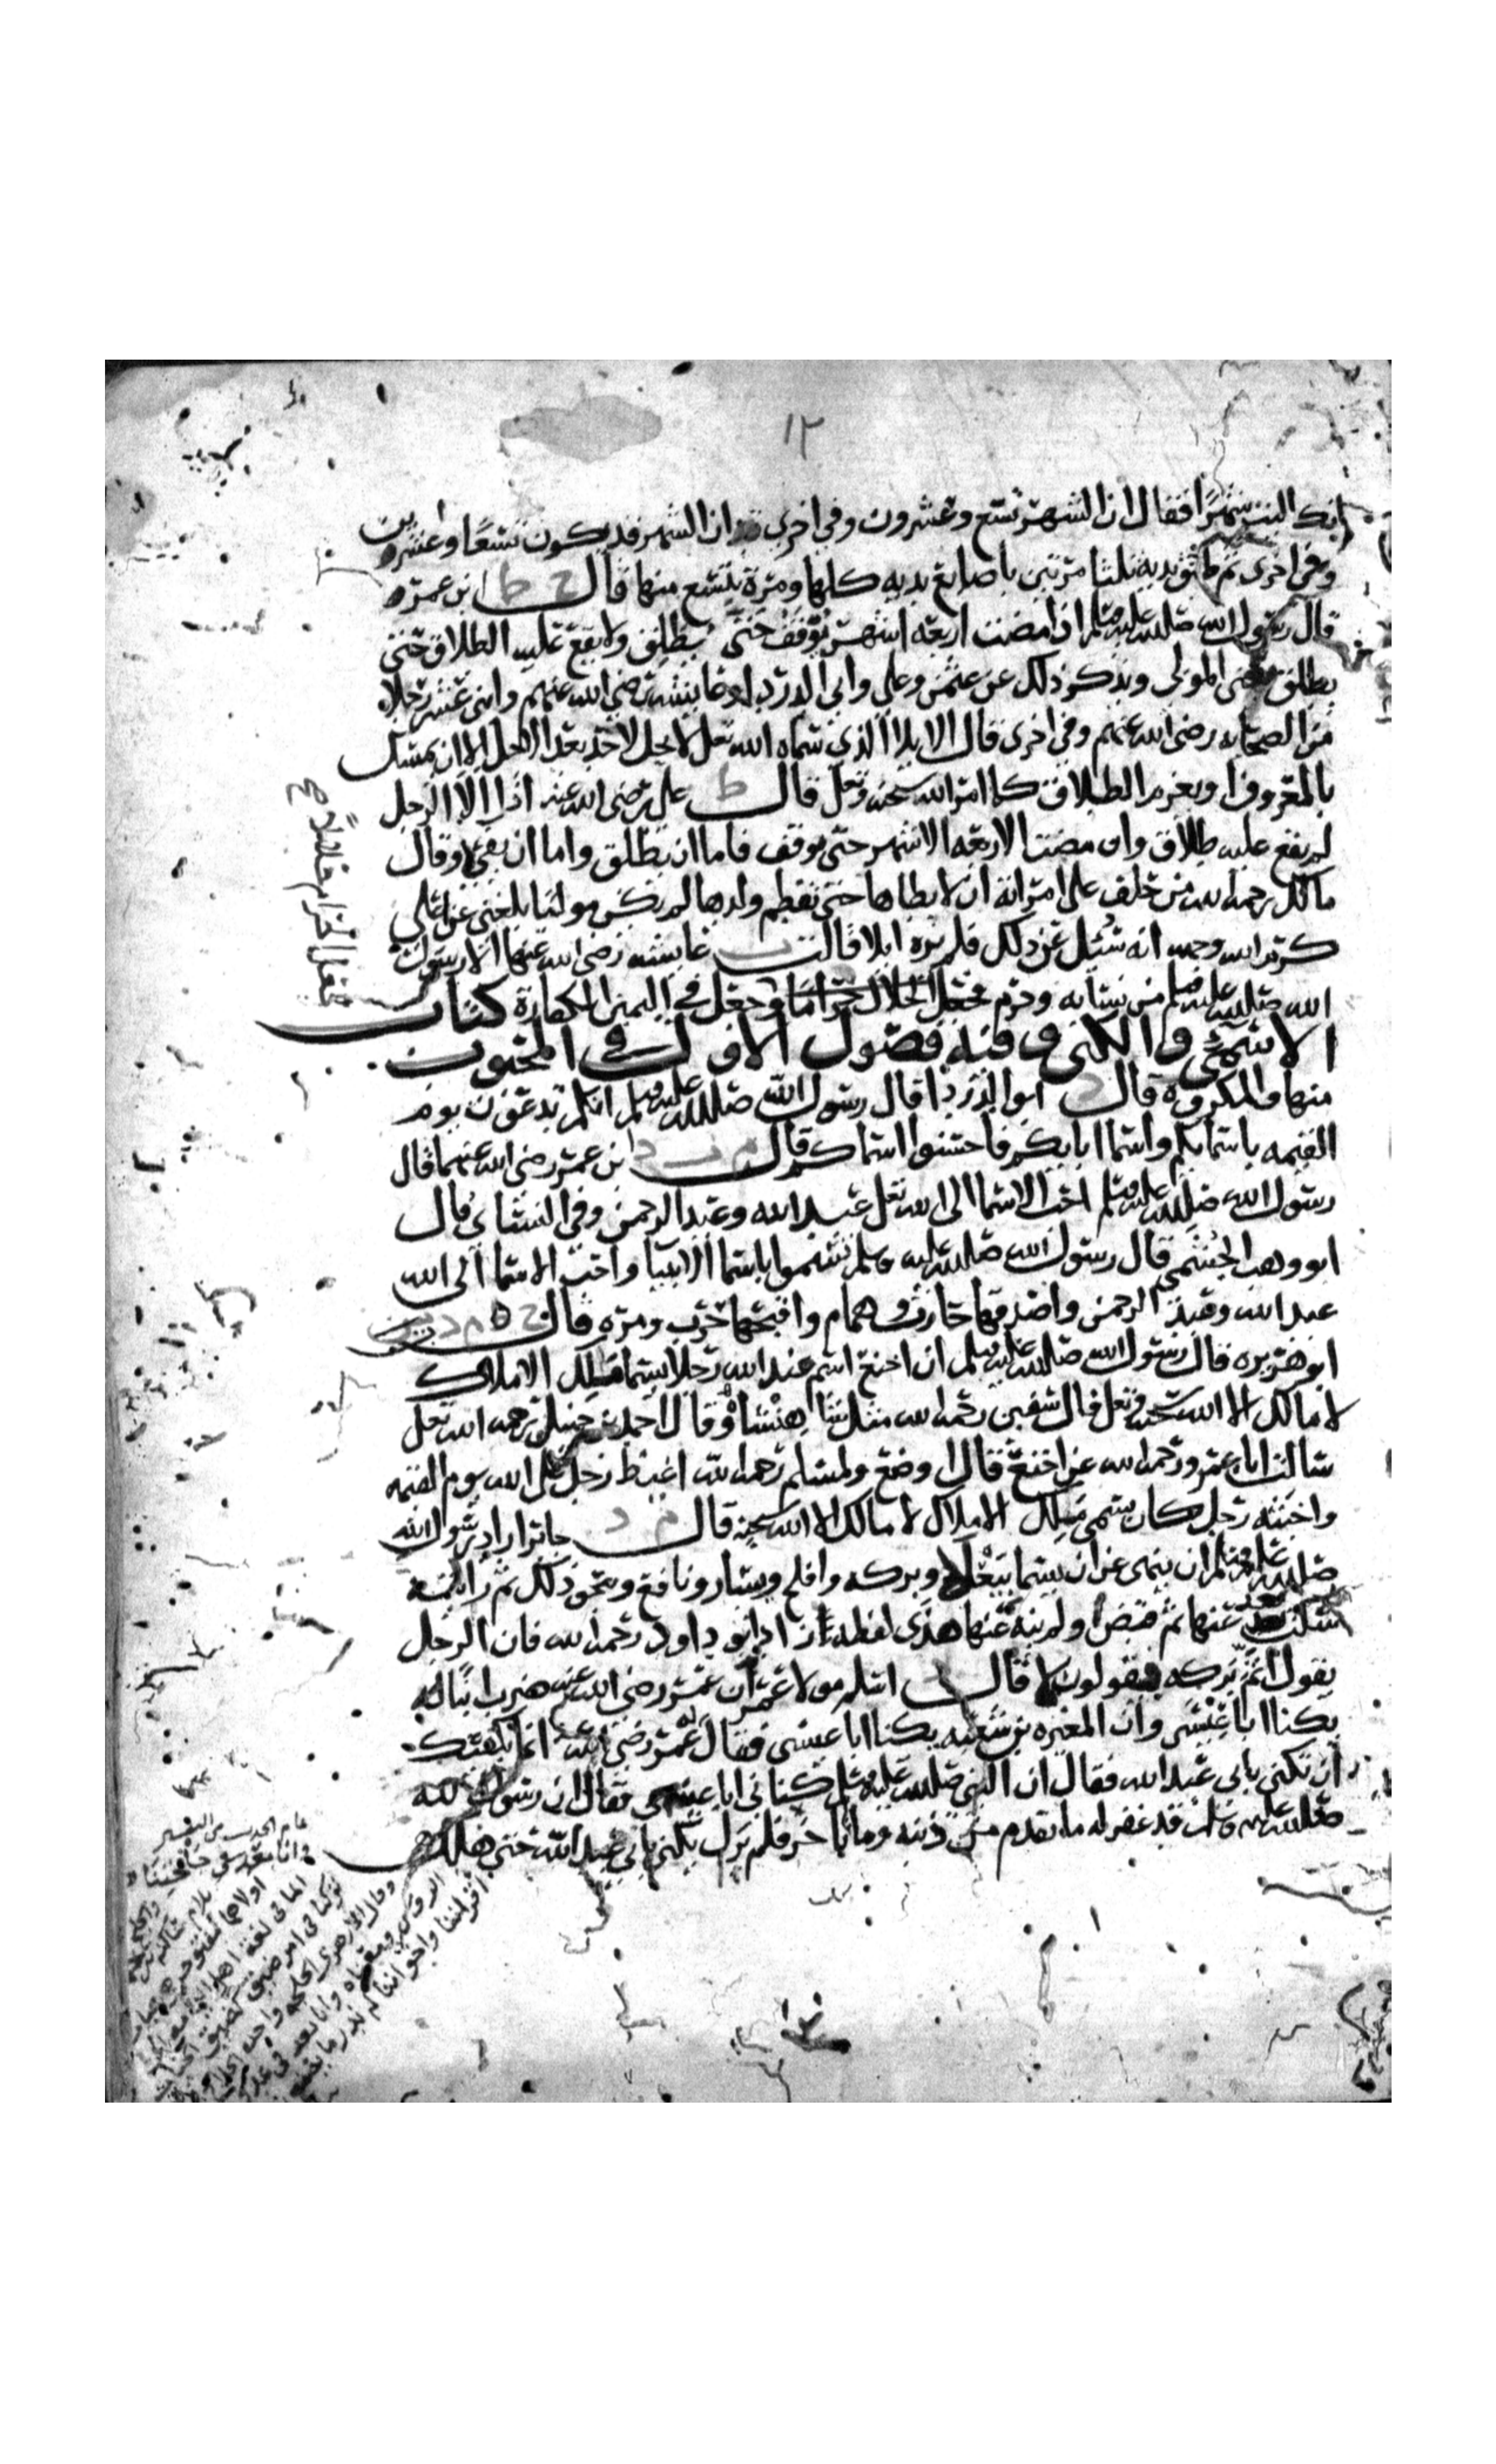 ١٢
انك البت شهرًا فقال ان الشهر تسع وعشرون وفي اخرى ان الشهر قد يكون تسعًا وعشرين
وفي اخرى ثم طبق يديه ثلثا مرتين باصابع يديه كلها ومرة بتسع منها قال خ ط ابن عمر
قال رسول الله صلى الله عليه وسلم اذا مضت اربعة اشهر يوقف حتى يطلق ولا يقع عليه الطلاق حتى
يطلق يعنى المولى ويذكر ذلك عن عثمن وعلي وابي الدردا وعايشه رضي الله عنهم واثنى عشر رجلا
من الصحابه رضي الله عنهم وفي اخرى قال الايلا الذي سماه الله تعلى لا يحل لاحد بعد الاجل الا ان يمسك
بالمعروف او يعزم الطلاق كما امر الله سبحنه وتعلى قال ط علي رضي الله عنه اذا الا الرجل
لم يقع عليه طلاق وان مضت الاربعه الاشهر حتى يوقف فاما ان يطلق واما ان يفئ وقال
مالك رحمه الله من حلف على امراته ان لا يطاها حتى تفطم ولدها لم يكن موليا بلغني عن علي
كرم الله وجهه انه سُئل عن ذلك فلم يره ايلا قالت ت عايشه رضي الله عنها الا رسول
الله صلى الله عليه وسلم من نسايه وحرم فجعل الحلال حرامًا وجعل في اليمين الكفارة كتاب
الاسمى والكنى وفيه فصول الاول في المحبوب
منها والمكروه قال د ابو الدردا قال رسول الله صلى الله عليه وسلم انكم تدعون يوم
القيمه باسمايكم واسما ابايكم فاحسنوا اسماكم قال م ت د ابن عمر رضي الله عنهما قال
رسول الله صلى الله عليه وسلم احب الاسما الى الله تعلى عبد الله وعبد الرحمن وفي النسائ قال
ابو وهب الجشمي قال رسول الله صلى الله عليه وسلم تسموا باسما الانبيا واحب الاسما الى الله
عبد الله وعبد الرحمن واصدقها حارث وهمام واقبحها حرب ومره قال خ م د ت
ابو هريره قال رسول الله صلى الله عليه وسلم ان اخنع اسم عند الله رجلا يسما ملك الاملاك
لا مالك الا الله سبحنه وتعلى قال سفين رحمه الله مثل شاهنشاه وقال احمد بن حنبل رحمه الله تعلى
سالت ابا عمرو رحمه الله عن اخنع فقال اوضع ولمسلم رحمه الله اغيظ رجل على الله يوم القيمه
واخبثه رجل كان يسمى ملك الاملاك لا مالك الا الله سبحنه قال م د جابر اراد رسول الله
صلى الله عليه وسلم ان ينهى عن ان يسما بيعلا وبركه وافلح ويسار ونافع ونحو ذلك ثم رايته
سكت بعد عنها ثم قبض ولم ينه عنها هذى لفظه زاد ابو داود رحمه الله فان الرجل
يقول اثم بركه فيقولون لا قال د اسلم مولا عمر ان عمر رضي الله عنه ضرب ابنا له
يكنا ابا عيسى وان المغيره بن شعبه يكنا ابا عيسى فقال له عمر رضي الله عنه اما يكفيك
ان تكنى بابي عبد الله فقال ان النبي صلى الله عليه وسلم كناني ابا عيسى فقال ان رسول الله
صلى الله عليه وسلم قد غفر له ما تقدم من ذنبه وما تاخر فلم يزل يكنى بابي عبد الله حتى هلك